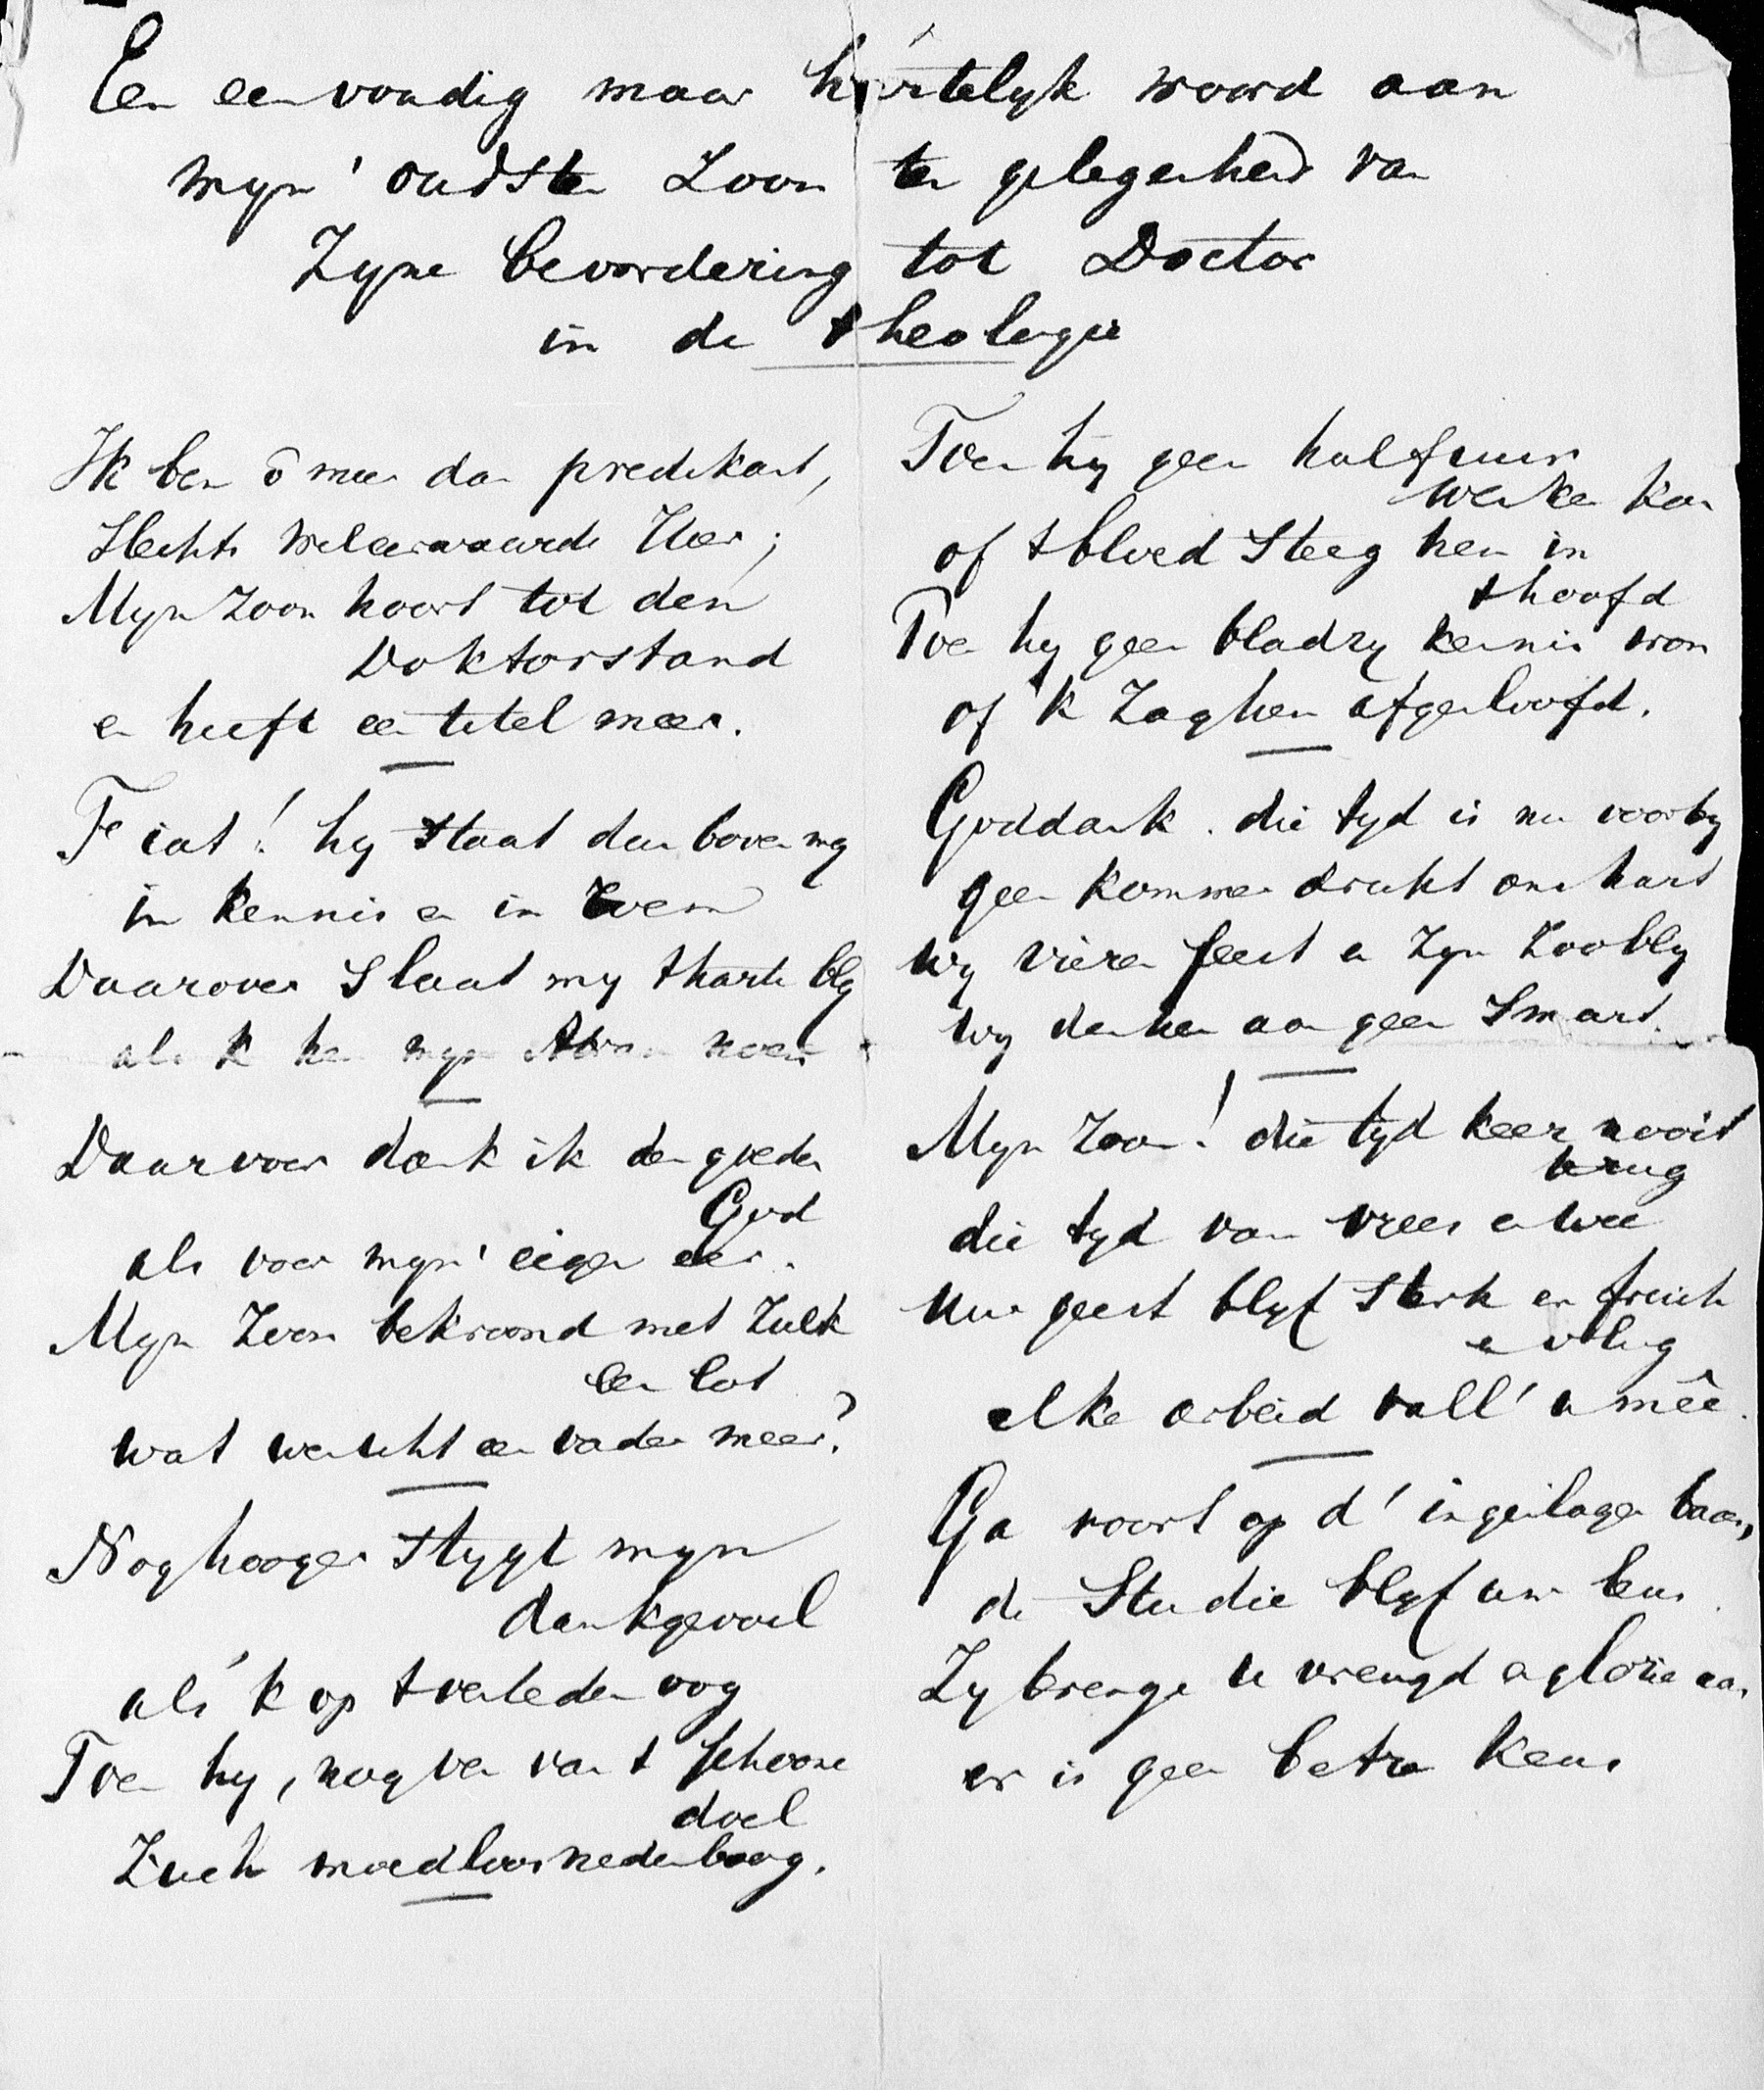 Een eenvoudig maar hartelyk woord aan
myn' oudsten Zoon ter gelegenheid van
Zyne bevordering tot Doctor
in de theologie
Ik ben ô meer dan predikant,
Slechts weleerwaarde Heer;
Myn zoon hoort tot den
Doktorstand
en heeft een titel meer.
Fiat! hy staat dan boven my
in kennis en in
Daarover slaat my t harte bly
als k hen myn noem
Daarvoor dank ik den goeden
God
als voor myn' eigen eer.
Myn Zoon bekroond met zulk
een lot
wat wenscht een vader meer?
Nog hooger stygt myn
dankgevoel
als 'k op t verleden oog
Toen hy, nog ver van t schoone
doel
Zich moedloos nederboog.
Toen hy geen half uur
werken kon
of t bloed steeg hem in
t hoofd
Toen hy geen bladzy kennis won
of 'k zag hem afgesloofd.
Goddank. die tyd is nu voorby
geen kommer drukt ons hart
wy vieren feest en zyn zoo bly
wy denken aan geen smart.
Myn zoon! die tyd keer nooit
terug
die tyd van vrees en wee
Uw geest blyf sterk en frisch
en vlug
elke arbeid vall' u meê.
Ga voort op d' ingeslagen baan,
de Studie blyf uw leus.
Zy brenge u vreugd en glorie aan
er is geen betre keus